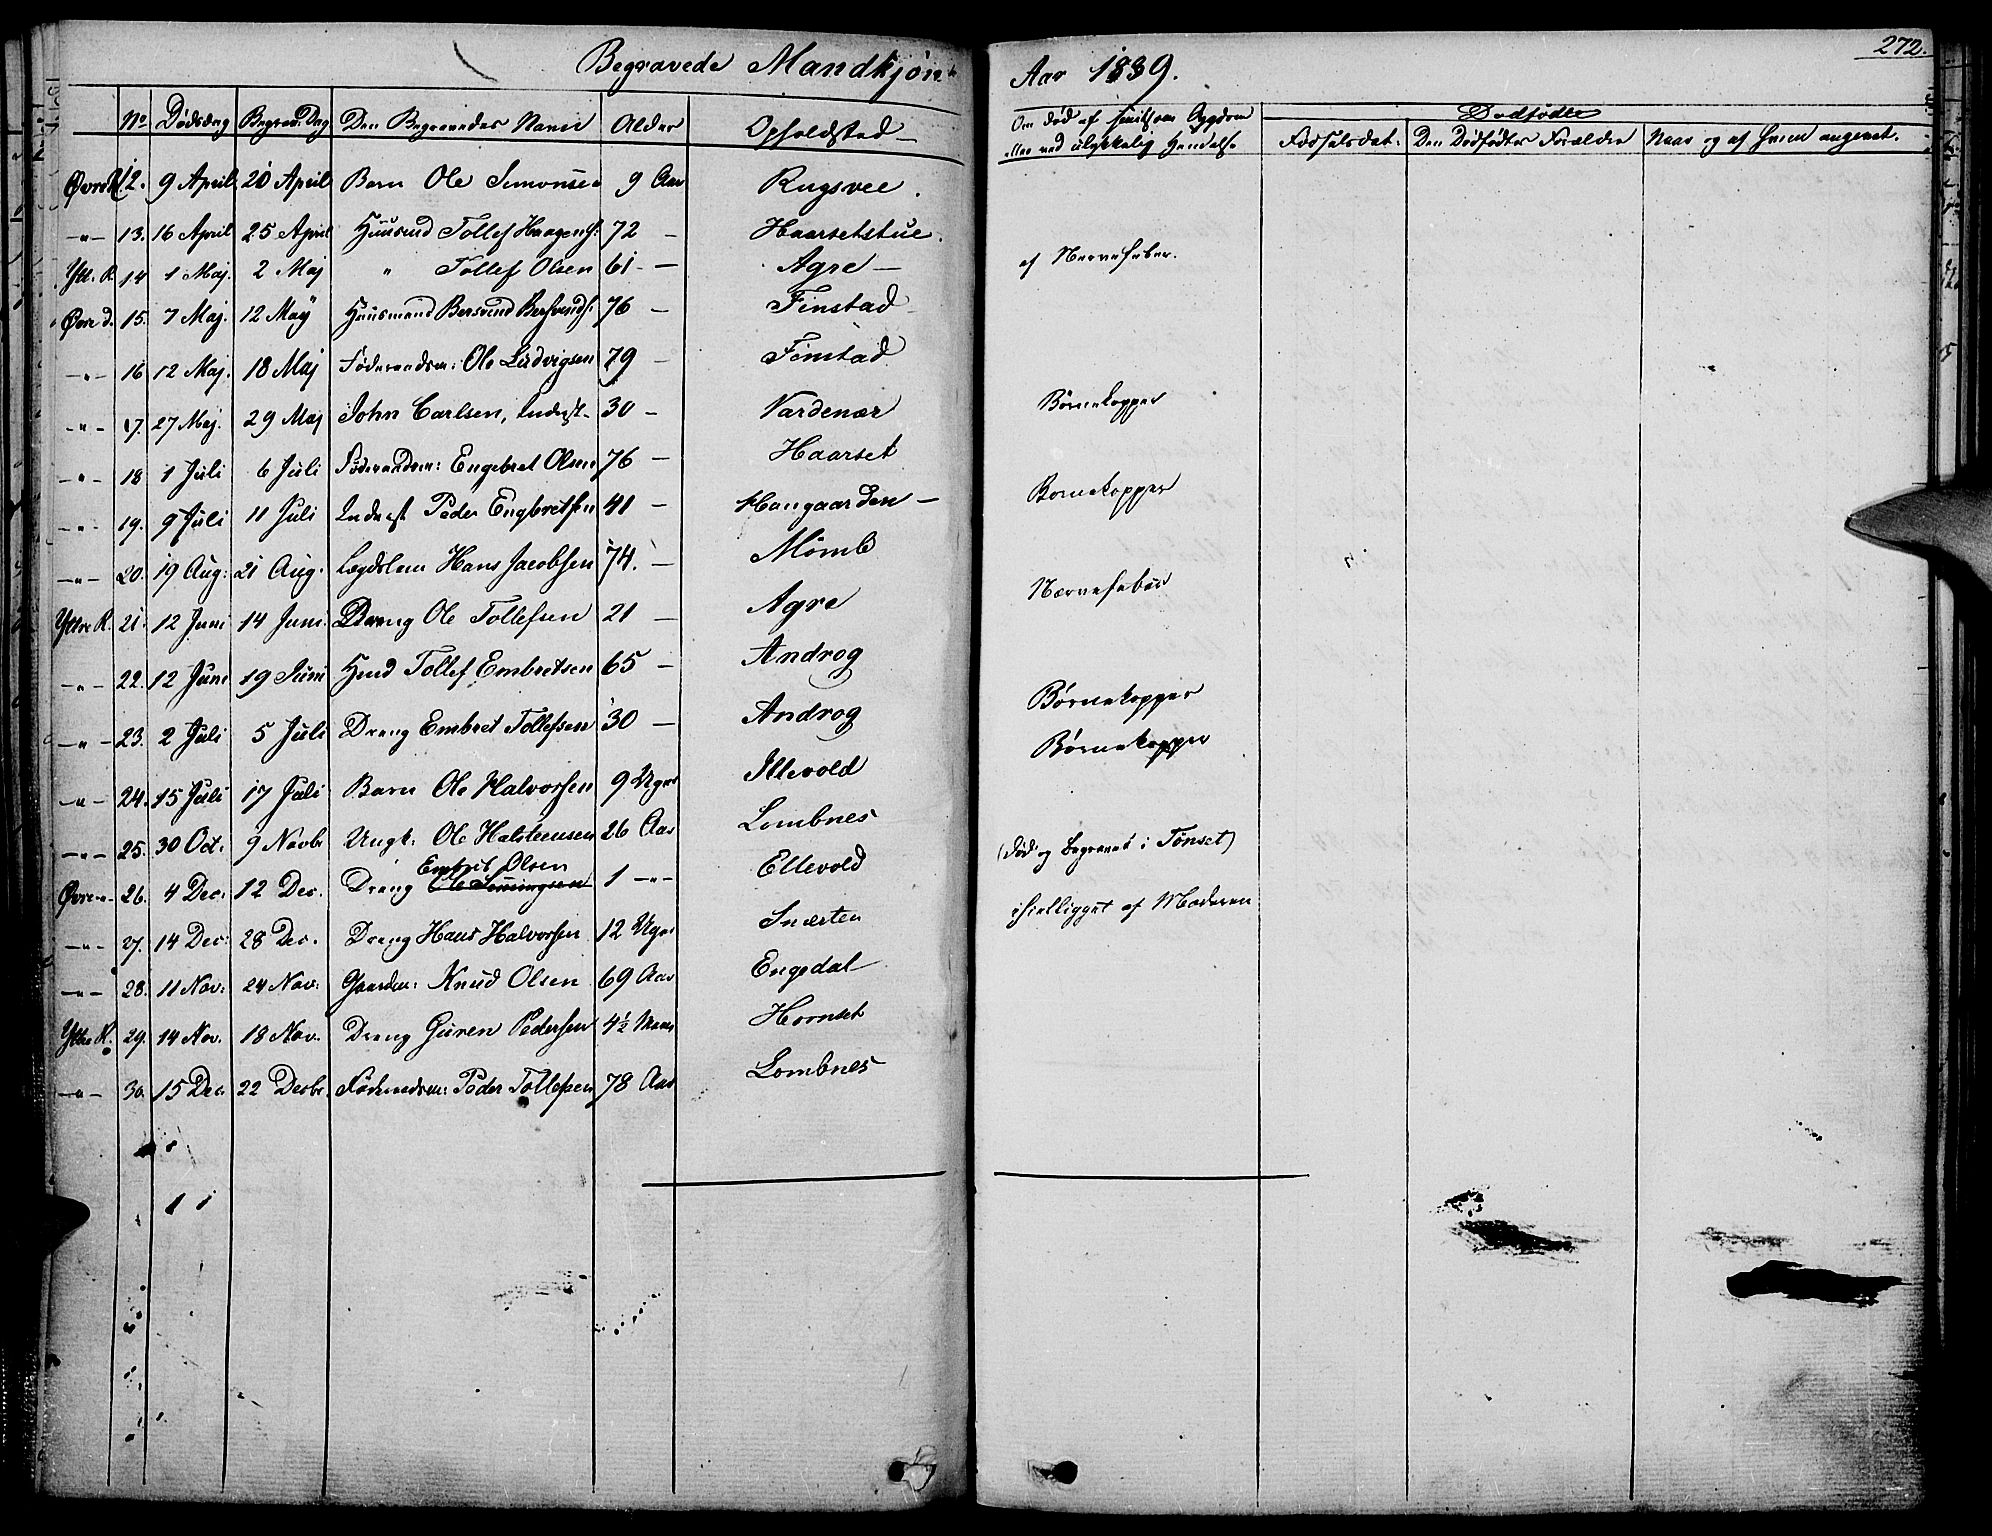 Begravede Mandkjøn
Aar 1839.
272.
No. Dødsdag Begrav: Dag Den Begravedes Navn Alder Opholdsted
Om død af smitsom Sygdom eller ved ulykkelig Hændelse
Dødfødte
Fødselsdat. Den Dødfødtes Forældre Naar og af hvem angivet.
Øvre R. 12. 9 April 20 April Barn Ole Simonsen 9 Aar Rugsvee.
-"- 13. 16 April 25 April Huusmd Tollef Haagens: 72 — Haarsetstue.
Ytt. R. 14 1 Maj. 2 Maj " Tollef Olsen 61 — Agre — af Nervefeber.
Øvre d. 15. 7 Maj. 12 Maÿ Huusmand Bersvend Bersvends: 76 — Finstad
-"- 16 12 Maj. 18 Maj Føderaadsm: Ole Ludvigsen 79 — Finstad
-"- 17. 27 Maj. 29 Maj John Carlsen, Inderst 30 — Vardenær Børnekopper
-"- 18 1 Juli 6 Juli Føderaadsm: Engebret Olsen 76 — Haarset
-"- 19. 9 Juli 11 Juli Inderst Peder Engbretsen 41 — Haugaarden — Bornekopper
-"- 20. 19 Aug: 21 Aug. Lægdslem Hans Jacobsen 74. — Mømb
Yttre R. 21. 12 Juni 14 Juni. Dreng Ole Tollefsen 21 — Agre Nærvefeber
-"- 22. 12 Juni 19 Juni Hmd Tollef Embretsen 65 — Androg
-"- 23. 2 Juli 5 Juli Dreng Embret Tollefsen 30 — Androg Børnekopper
-"- 24. 15 Juli 17 Juli Barn Ole Halvorsen 9 Uger Illevold Børnekopper
-"- 25. 30 Oct. 9 Novbr Ungk: Ole Halsteensen 26 Aar Lombnes (død og begravet i Tønset)
Embret Olsen
Øvre -"- 26. 4 Dec. 12 Dec. Dreng 1 -"- Ellevold ihielligget af Moderen
-"- 27. 14 Dec: 28 Dec. Dreng Hans Halvorsen 12 Uger Snerten
-"- 28. 11 Nov: 24 Nov: Gaardm: Knud Olsen 69 Aar Engedal
Yttre R. 29. 14 Nov. 18 Nov. Dreng Guren Pedersen 4½ Maan Hornset
-"- 30. 15 Dec. 22 Decbr. Føderaadsm: Peder Tollefsen 78 Aar Lombnes